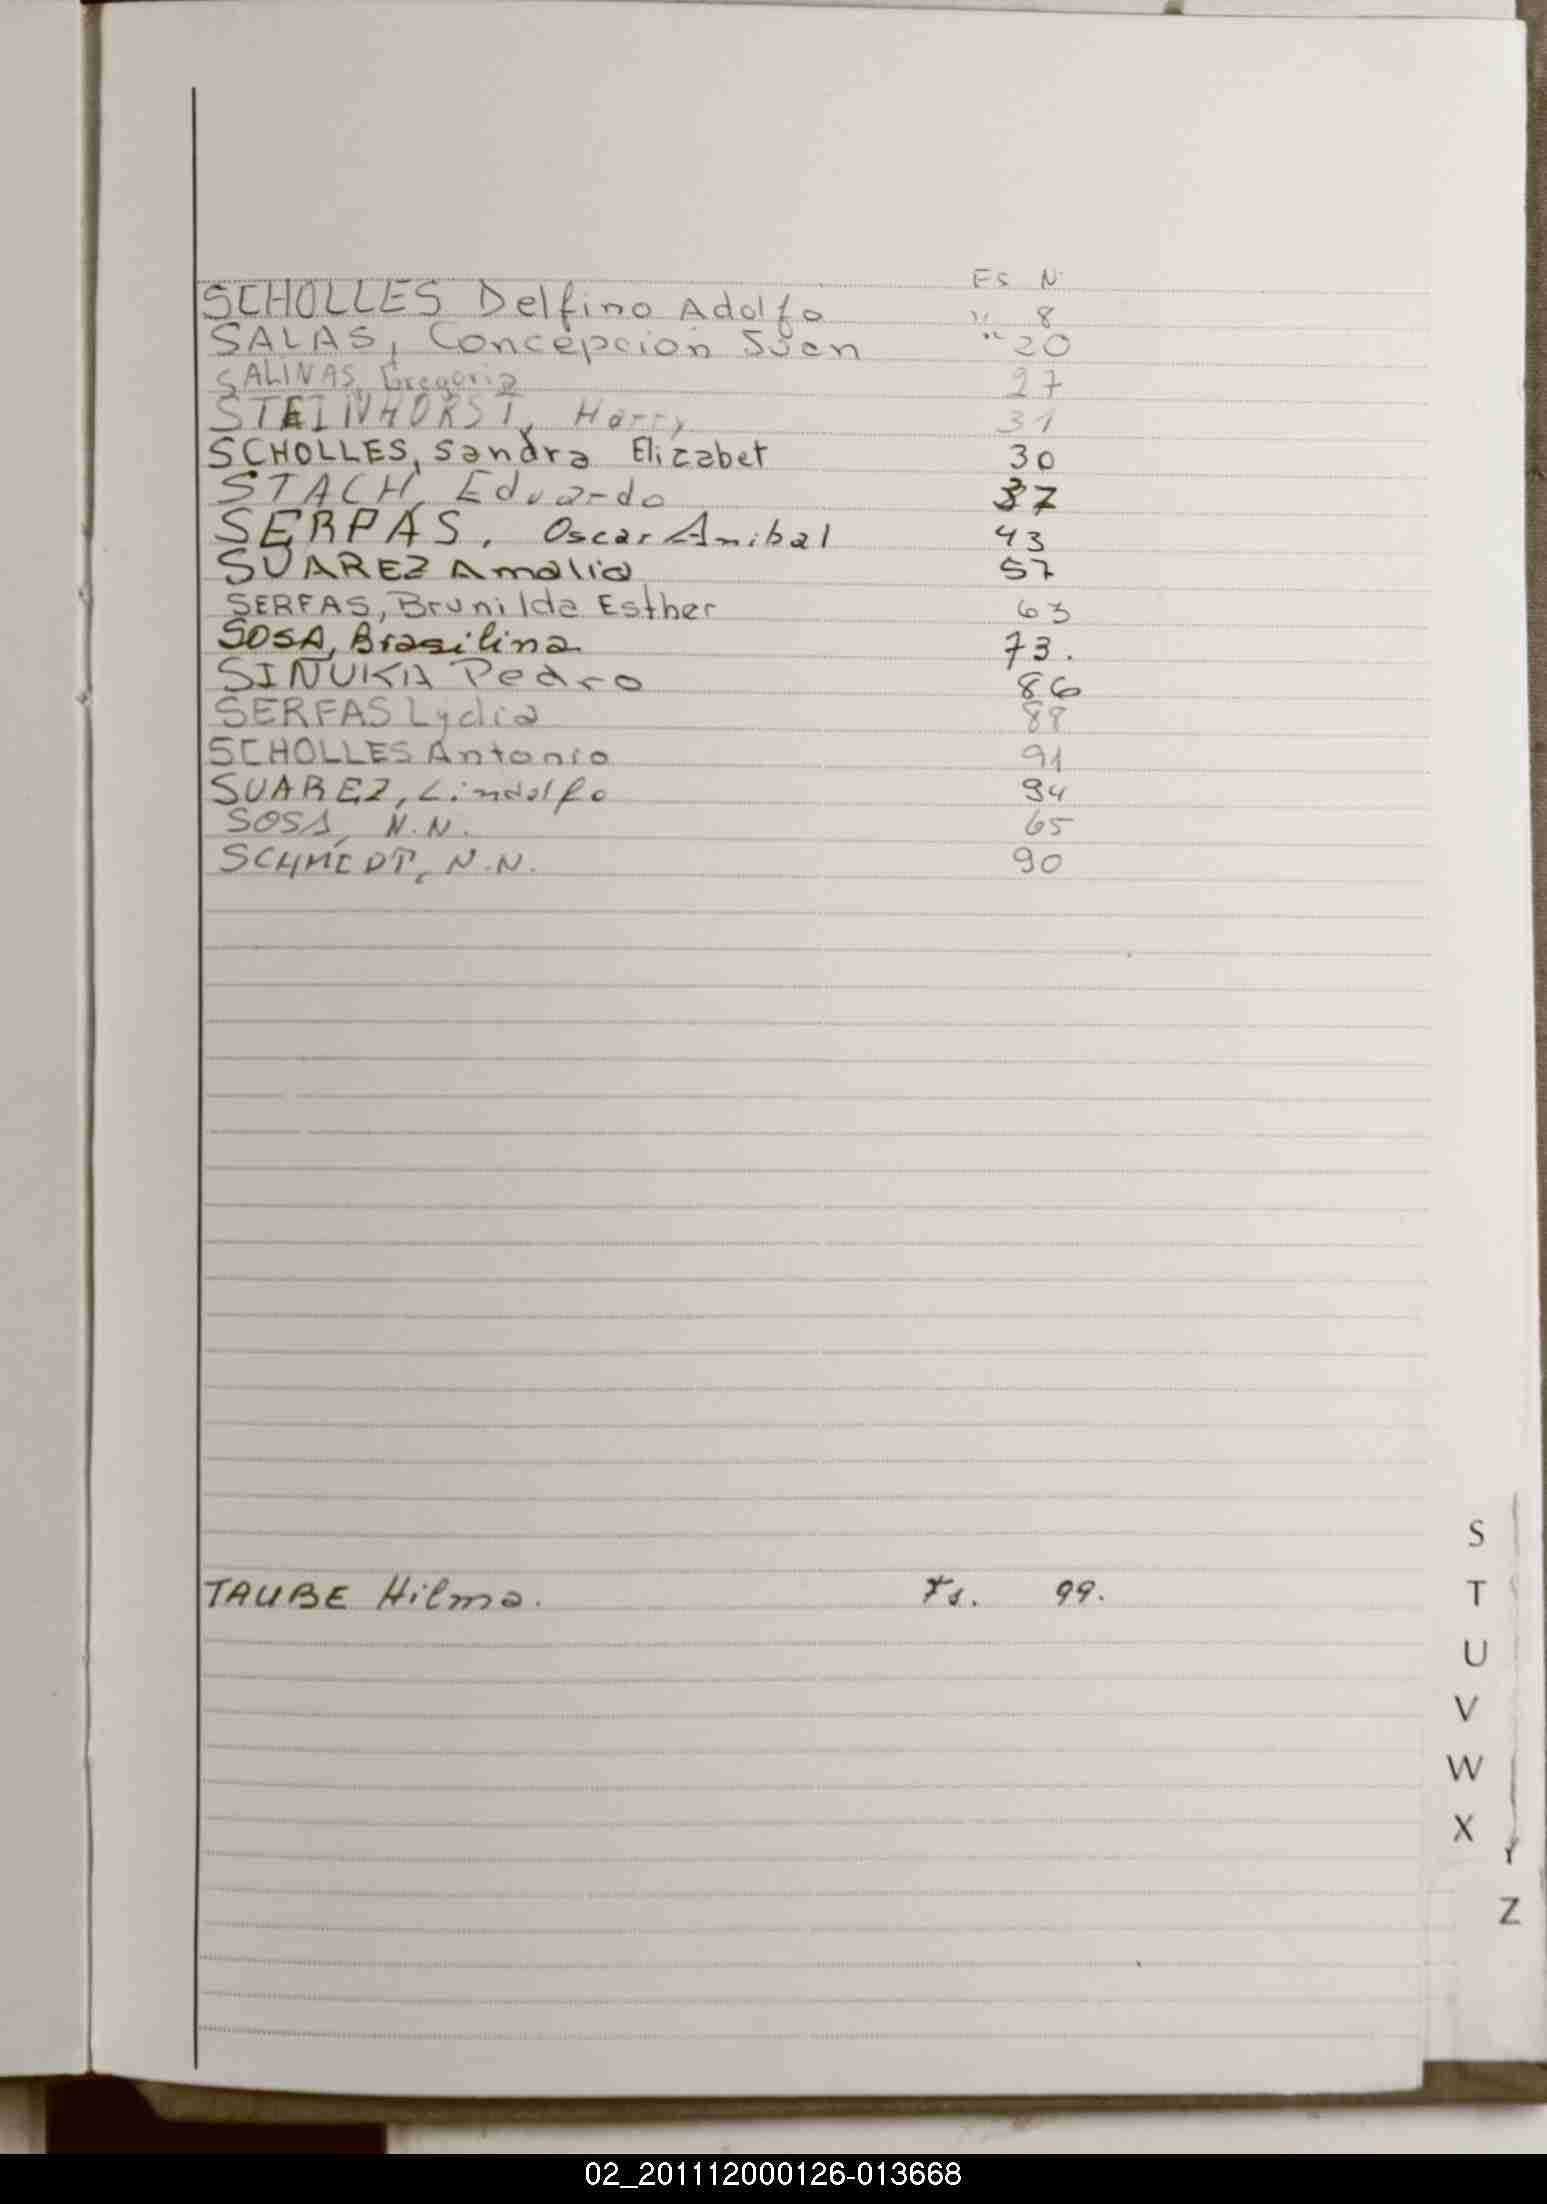 Fs N
SCHOLLES Delfino Adolfo " 8
SALAS, Concepcion Juan " 20
SALINAS, Gregoria 27
STEINHORST, Harry 31
SCHOLLES, Sandra Elizabet 30
STACH, Eduardo 37
SERPAS, Oscar Anibal 43
SUAREZ Amalia 57
SERFAS, Brunilda Esther 63
SOSA, Brasilina 73.
SINUKA Pedro 86
SERFAS Lydia 88
SCHOLLES Antonio 91
SUAREZ, Lindolfo 94
SOSA, N.N. 65
SCHMIDT, N.N. 90
TAUBE Hilma. Fs. 99.
S
T
U
V
W
X
Y
Z
02_201112000126-013668